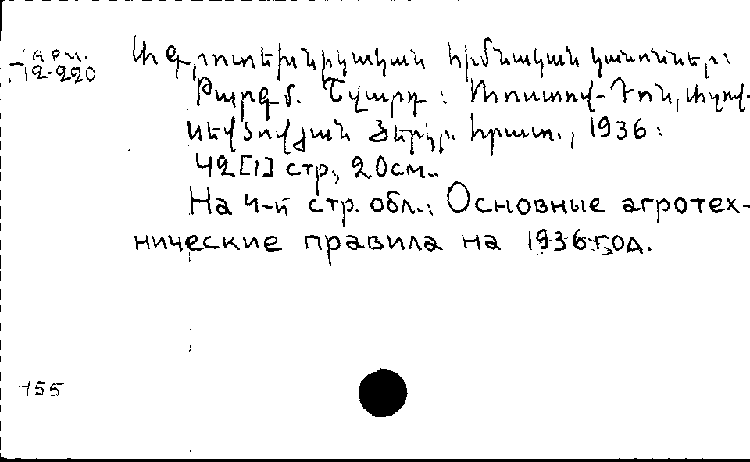 арм.
12-220
Ագրոտեխնիկական հիմնական կանոններ։
Թարգմ. Շվարդ։ Ռոստով-Դոն, Ազով-
սևծովյան Երկր. հրատ., 1936։
42[1] стр., 20см.
На 4-й стр. обл.: Основные агротех-
нические правила на 1936 год.
155